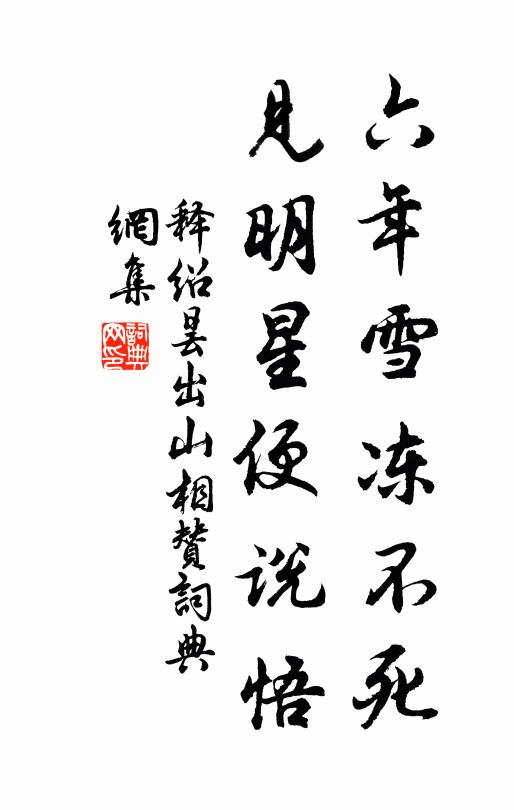 六年雪冻不死
见明星便说悟
释绍昙出山相赞詞典
網集
詞典
网印